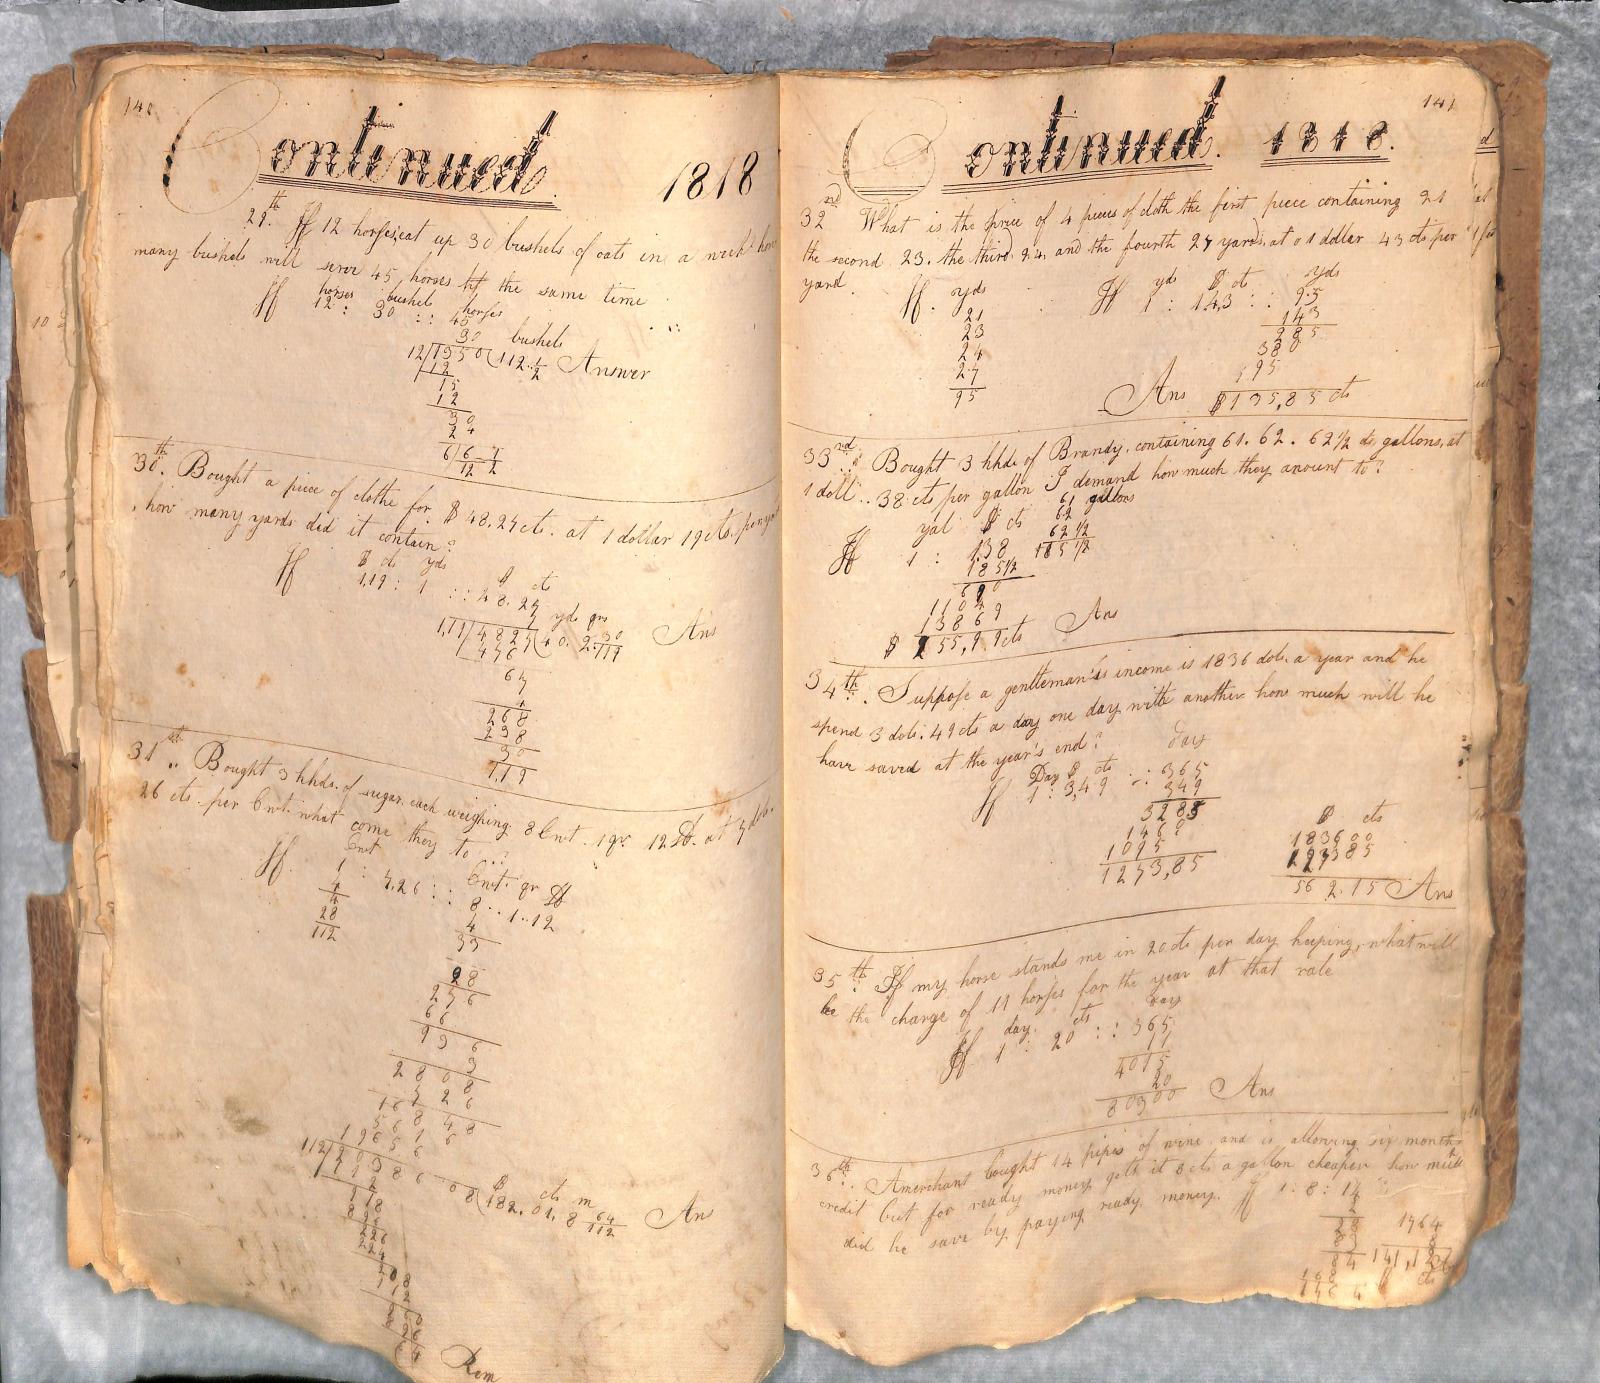 140
Continued. 1818
29th. If 12 horses eat up 30 bushels of oats in a week how
many bushels will serve 45 horses the same time
horses bushels horses
If 12 : 30 :: 45
30 bushels
12/1350(112.1/2 Answer
12
15
12
30
24
6/6
12
30th. Bought a piece of clothe for $ 48.27cts. at 1 dollar 19cts. per
how many yards did it contain?
$ cts yds $ ct
If 1,19 : 1 :: 48.27
yds qrs
4827(40. 2.30/119 Ans
476
67
4
268
238
30
119
31st.. Bought 3 hhds. of sugar each weighing 8 Cwt. 1 qr. 12 lb. at 7 dols.
26 cts. per Cwt. what come they to..?
Cwt Cwt. qr lb
If 1 : 7,26 :: 8..1..12
4 4
4 33
28 28
112 276
66
936
3
2808
726
16848
5616
19656
112/2038608(182.01.8 64/112 Ans
$ cts m
112
918
896
226
224
208
112
960
896
64 Rem
141
Continued. 1818.
32nd What is the price of 4 pieces of cloth the first piece containing 21
the second 23. the third 24, and the fourth 27 yards, at 01 dollar 43 cts per
yard.
If. yds If yds $ ct yds
21 1 : 1,43 :: 95
23 143
24 285
27 380
95 95
Ans $135,85 cts
33rd. Bought 3 hhds of Brandy, containing 61. 62. 62 1/2 do, gallons, at
1 doll.. 38 cts per gallon I demand how much they amount to?
61 gallons
yal $ cts 62
If 1 : 138 62 1/2
185 1/2 185 1/2
690
1104
1386 9
$ 255,99cts Ans
34th. Suppose a gentleman's income is 1836 dols. a year and he
spend 3 dols. 49 cts a day one day with another how much will he
have saved at the year's end?
Day $ cts days
If 1 : 3,49 :: 365
349
3285 $ cts
1460 183600
1095 127385
1273,85 562.15 Ans
35th. If my horse stands me in 20 cts per day keeping, what will
be the charge of 11 horses for the year at that rate
day. cts day
If 1 : 20 :: 365
11
4015
20
80300 Ans
36th. A merchant bought 14 pipes of wine, and is allowing six months
credit but for ready money gets it 8 cts a gallon cheaper how much
did he save by paying ready money. If 1 : 8 : 14
2
28 1764
3 8
84 141,12
$ cts